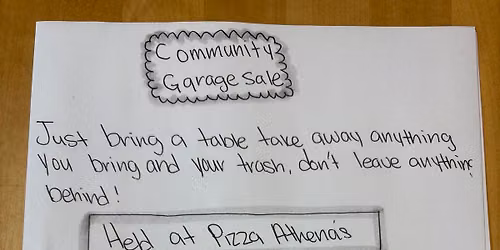 Community
Garage sale
Just bring a table take away anything
you bring and your trash, don't leave anything
behind!
Held at Pizza Athena's